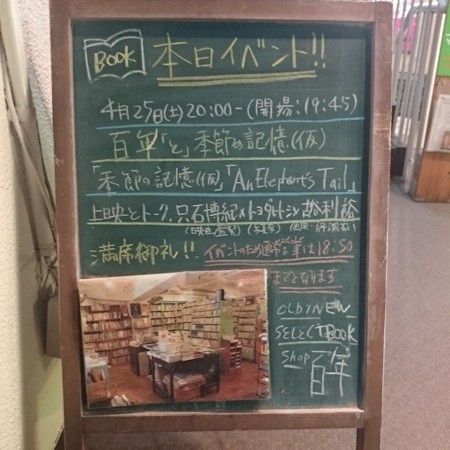 BOOK 本日イベント!!
4月25日(土)20:00-(開場:19:45)
百年「と」季節の記憶(仮)
「季節の記憶(仮)」「An Elephant's Tail」
上映とトーク、只石博紀×トヨダヒトシ×古谷利裕
(映画監督) (写真家) (画家・評論家)
満席御礼!! イベントのため通常営業は18:50
までとなります
OLD/NEW
SELECT BOOK
Shop 百年